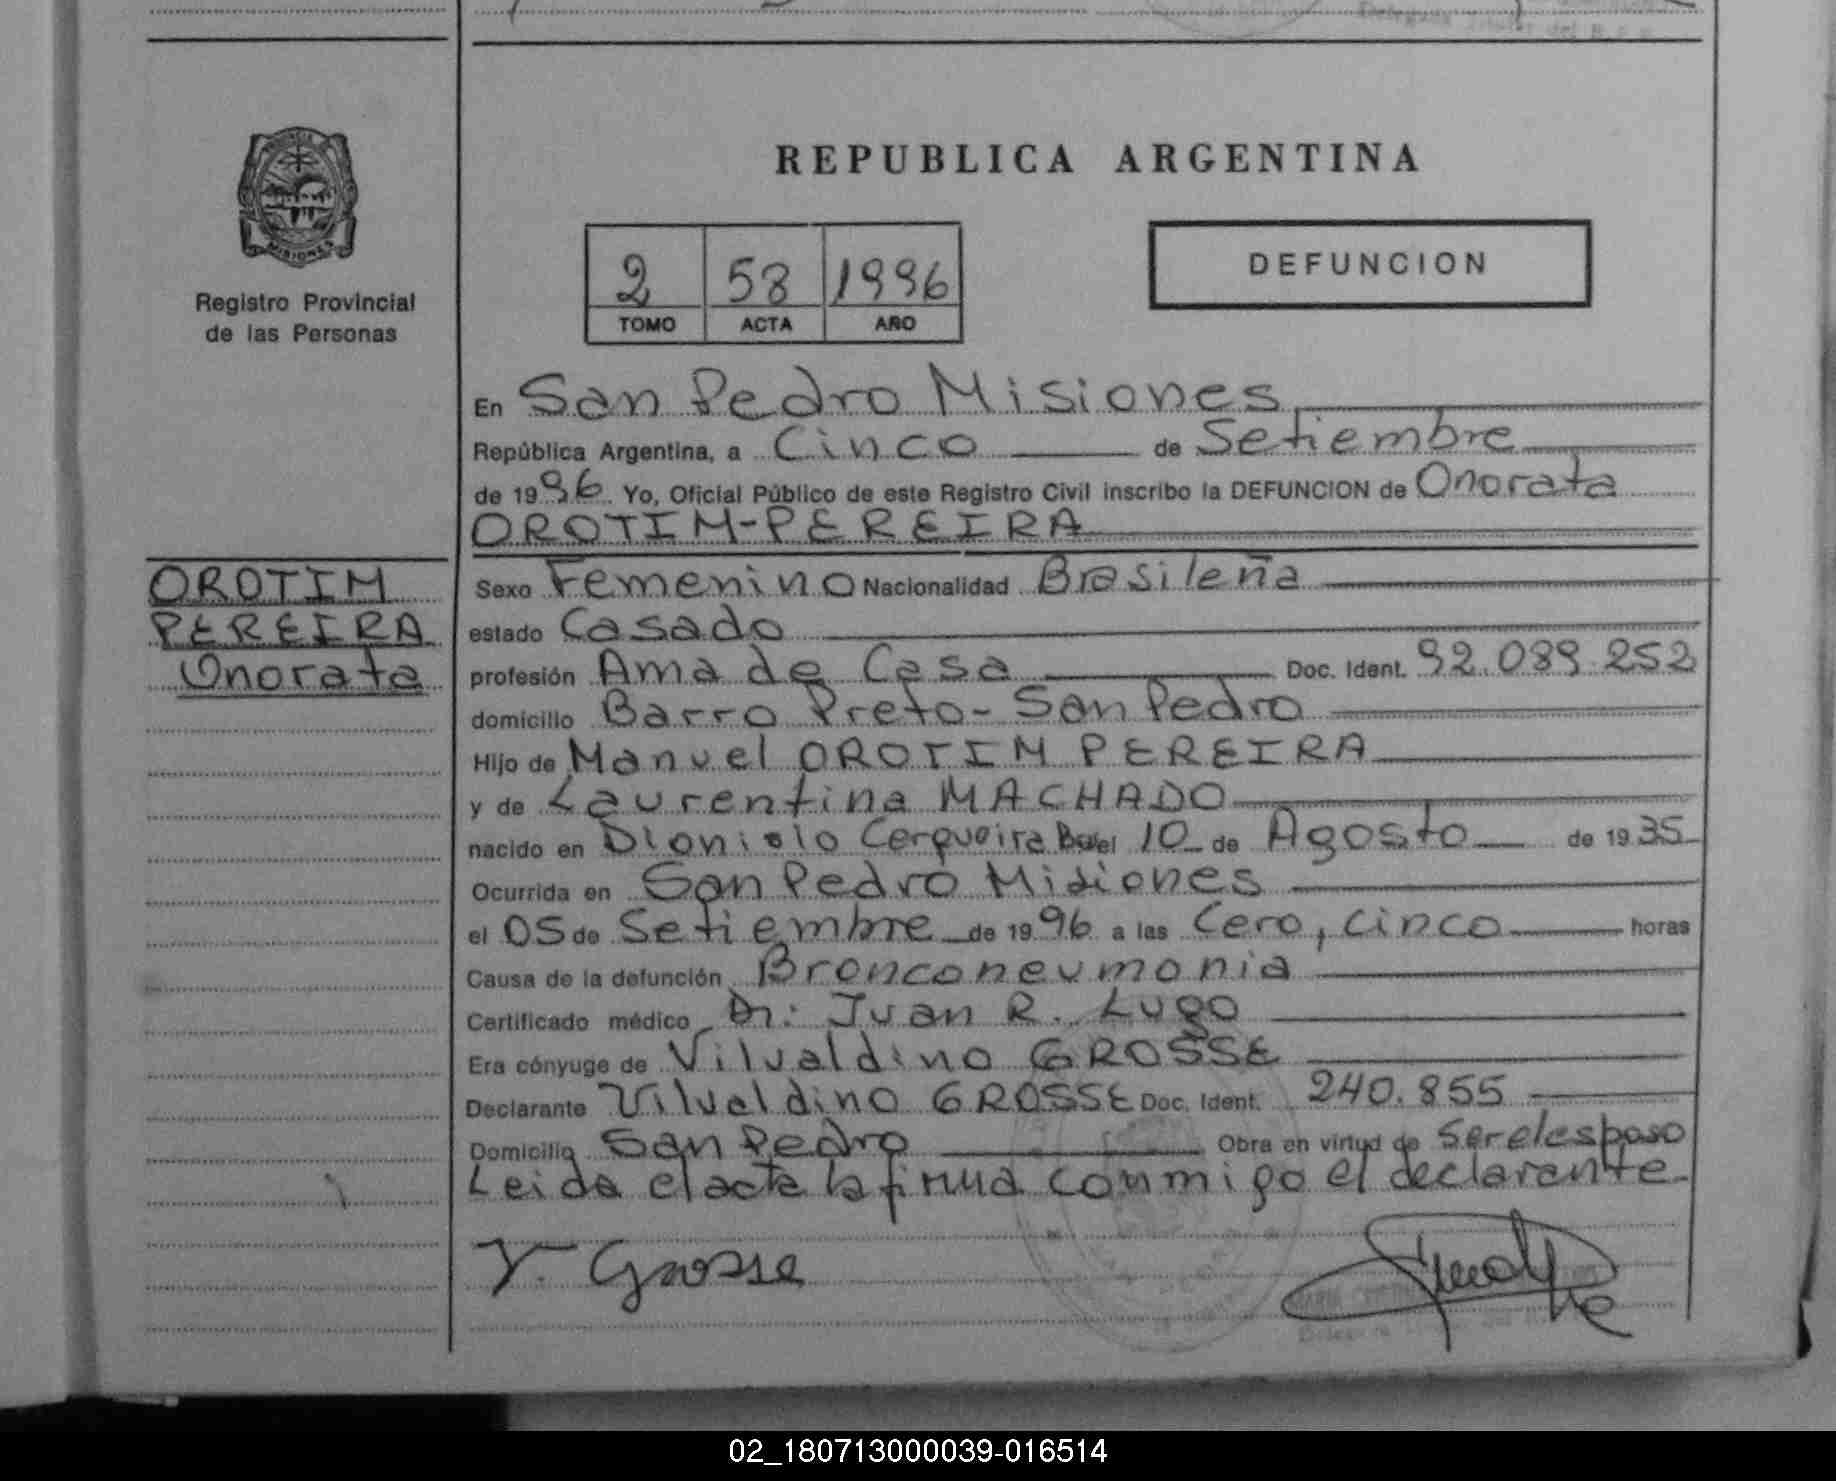 PROVINCIA
MISIONES
Registro Provincial
de las Personas
REPUBLICA ARGENTINA
2 58 1996
TOMO ACTA AÑO
DEFUNCION
En San Pedro Misiones
República Argentina, a Cinco de Setiembre
de 1996 Yo, Oficial Público de este Registro Civil inscribo la DEFUNCION de Onorata
OROTIM-PEREIRA
OROTIM
PEREIRA
Onorata
Sexo Femenino Nacionalidad Brasileña
estado Casado
profesión Ama de Casa Doc. Ident. 92.089.252
domicilio Barro Preto-San Pedro
Hijo de Manuel OROTIM PEREIRA
y de Laurentina MACHADO
nacido en Dionisio Cerqueira el 10 de Agosto de 1935
Ocurrida en San Pedro Misiones
el 05 de Setiembre de 1996 a las Cero, Cinco horas
Causa de la defunción Bronconeumonia
Certificado médico Dr: Juan R. Lugo
Era cónyuge de Vilvaldino GROSSE
Declarante Vilvaldino GROSSE Doc. Ident. 240.855
Domicilio San Pedro Obra en virtud de Ser el esposo
Leida el acta la firma conmigo el declarante
V. Grosse
02_180713000039-016514